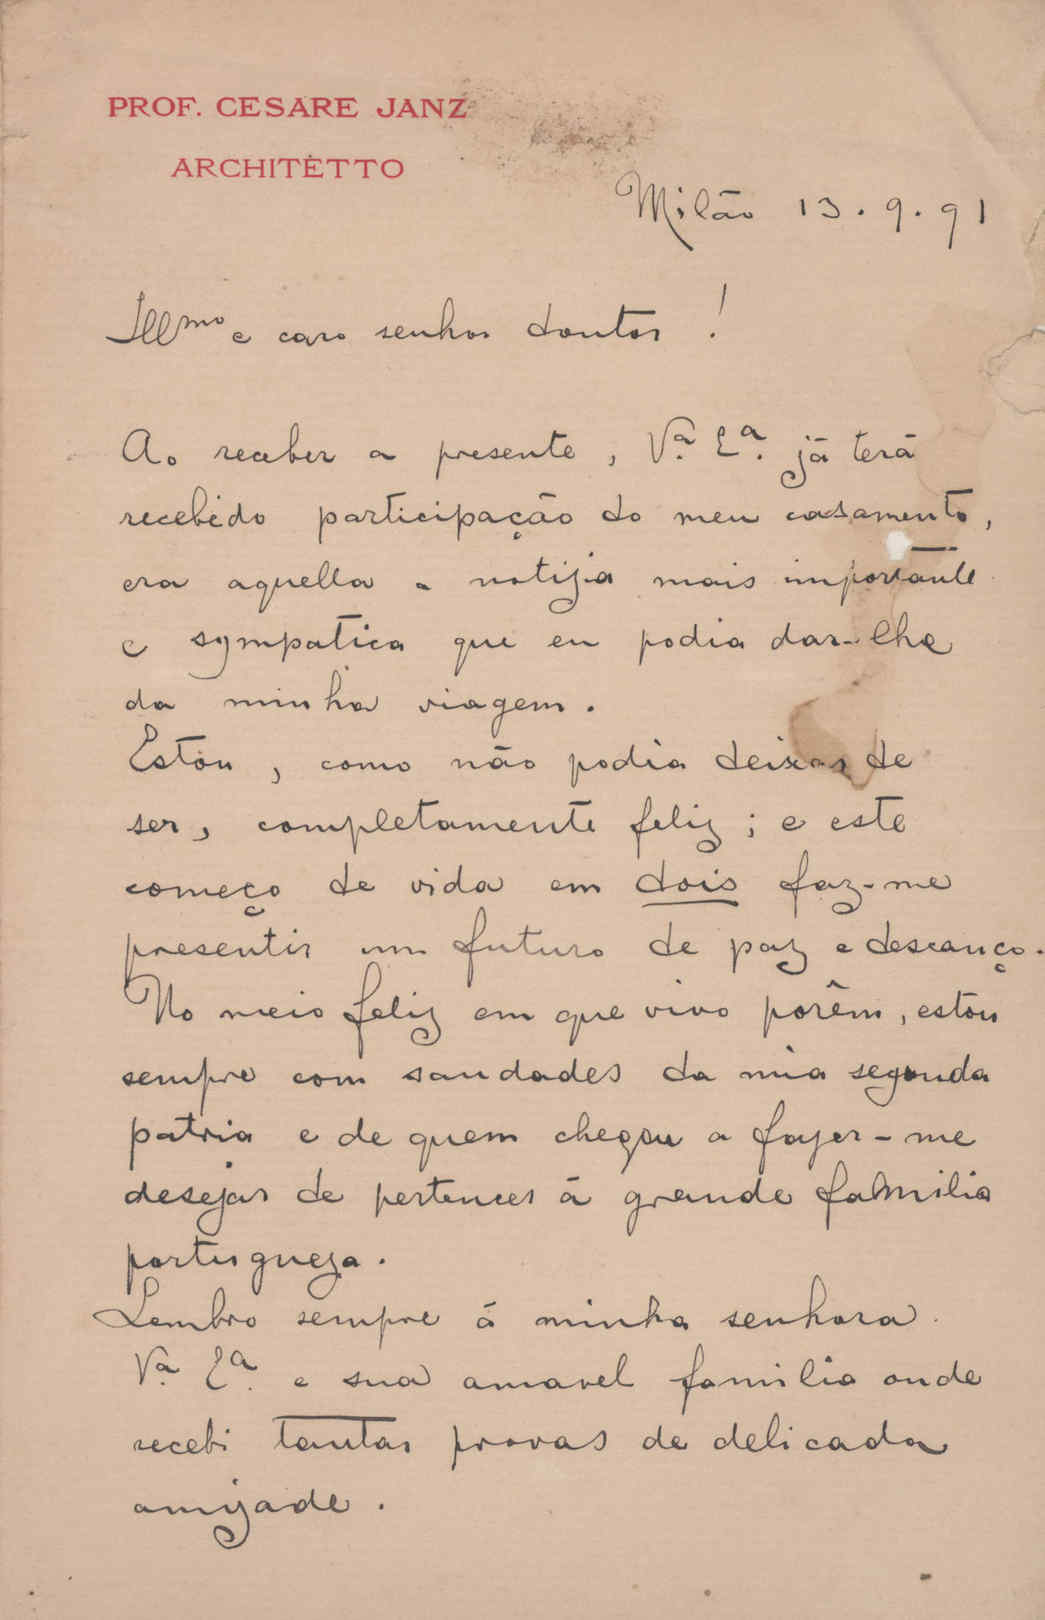 PROF. CESARE JANZ
ARCHITÈTTO
Milão 13.9.91
Illmo e caro senhor doutor!
Ao receber a presente, Va. Ea. já terá
recebido participação do meu casamento,
era aquella a notizia mais importante
e sympatica que eu podia dar-lhe
da minha viagem.
Estou, como não podia deixar de
ser, completamente feliz; e este
começo de vida em dois faz-me
presentir um futuro de paz e descanço.
No meio feliz em que vivo porêm, estou
sempre com saudades da mia segonda
patria e de quem chegou a fazer-me
desejar de pertencer á grande familia
portugueza.
Lembro sempre á minha senhora
Va. Ea. e sua amavel familia onde
recebi tantas provas de delicada
amizade.